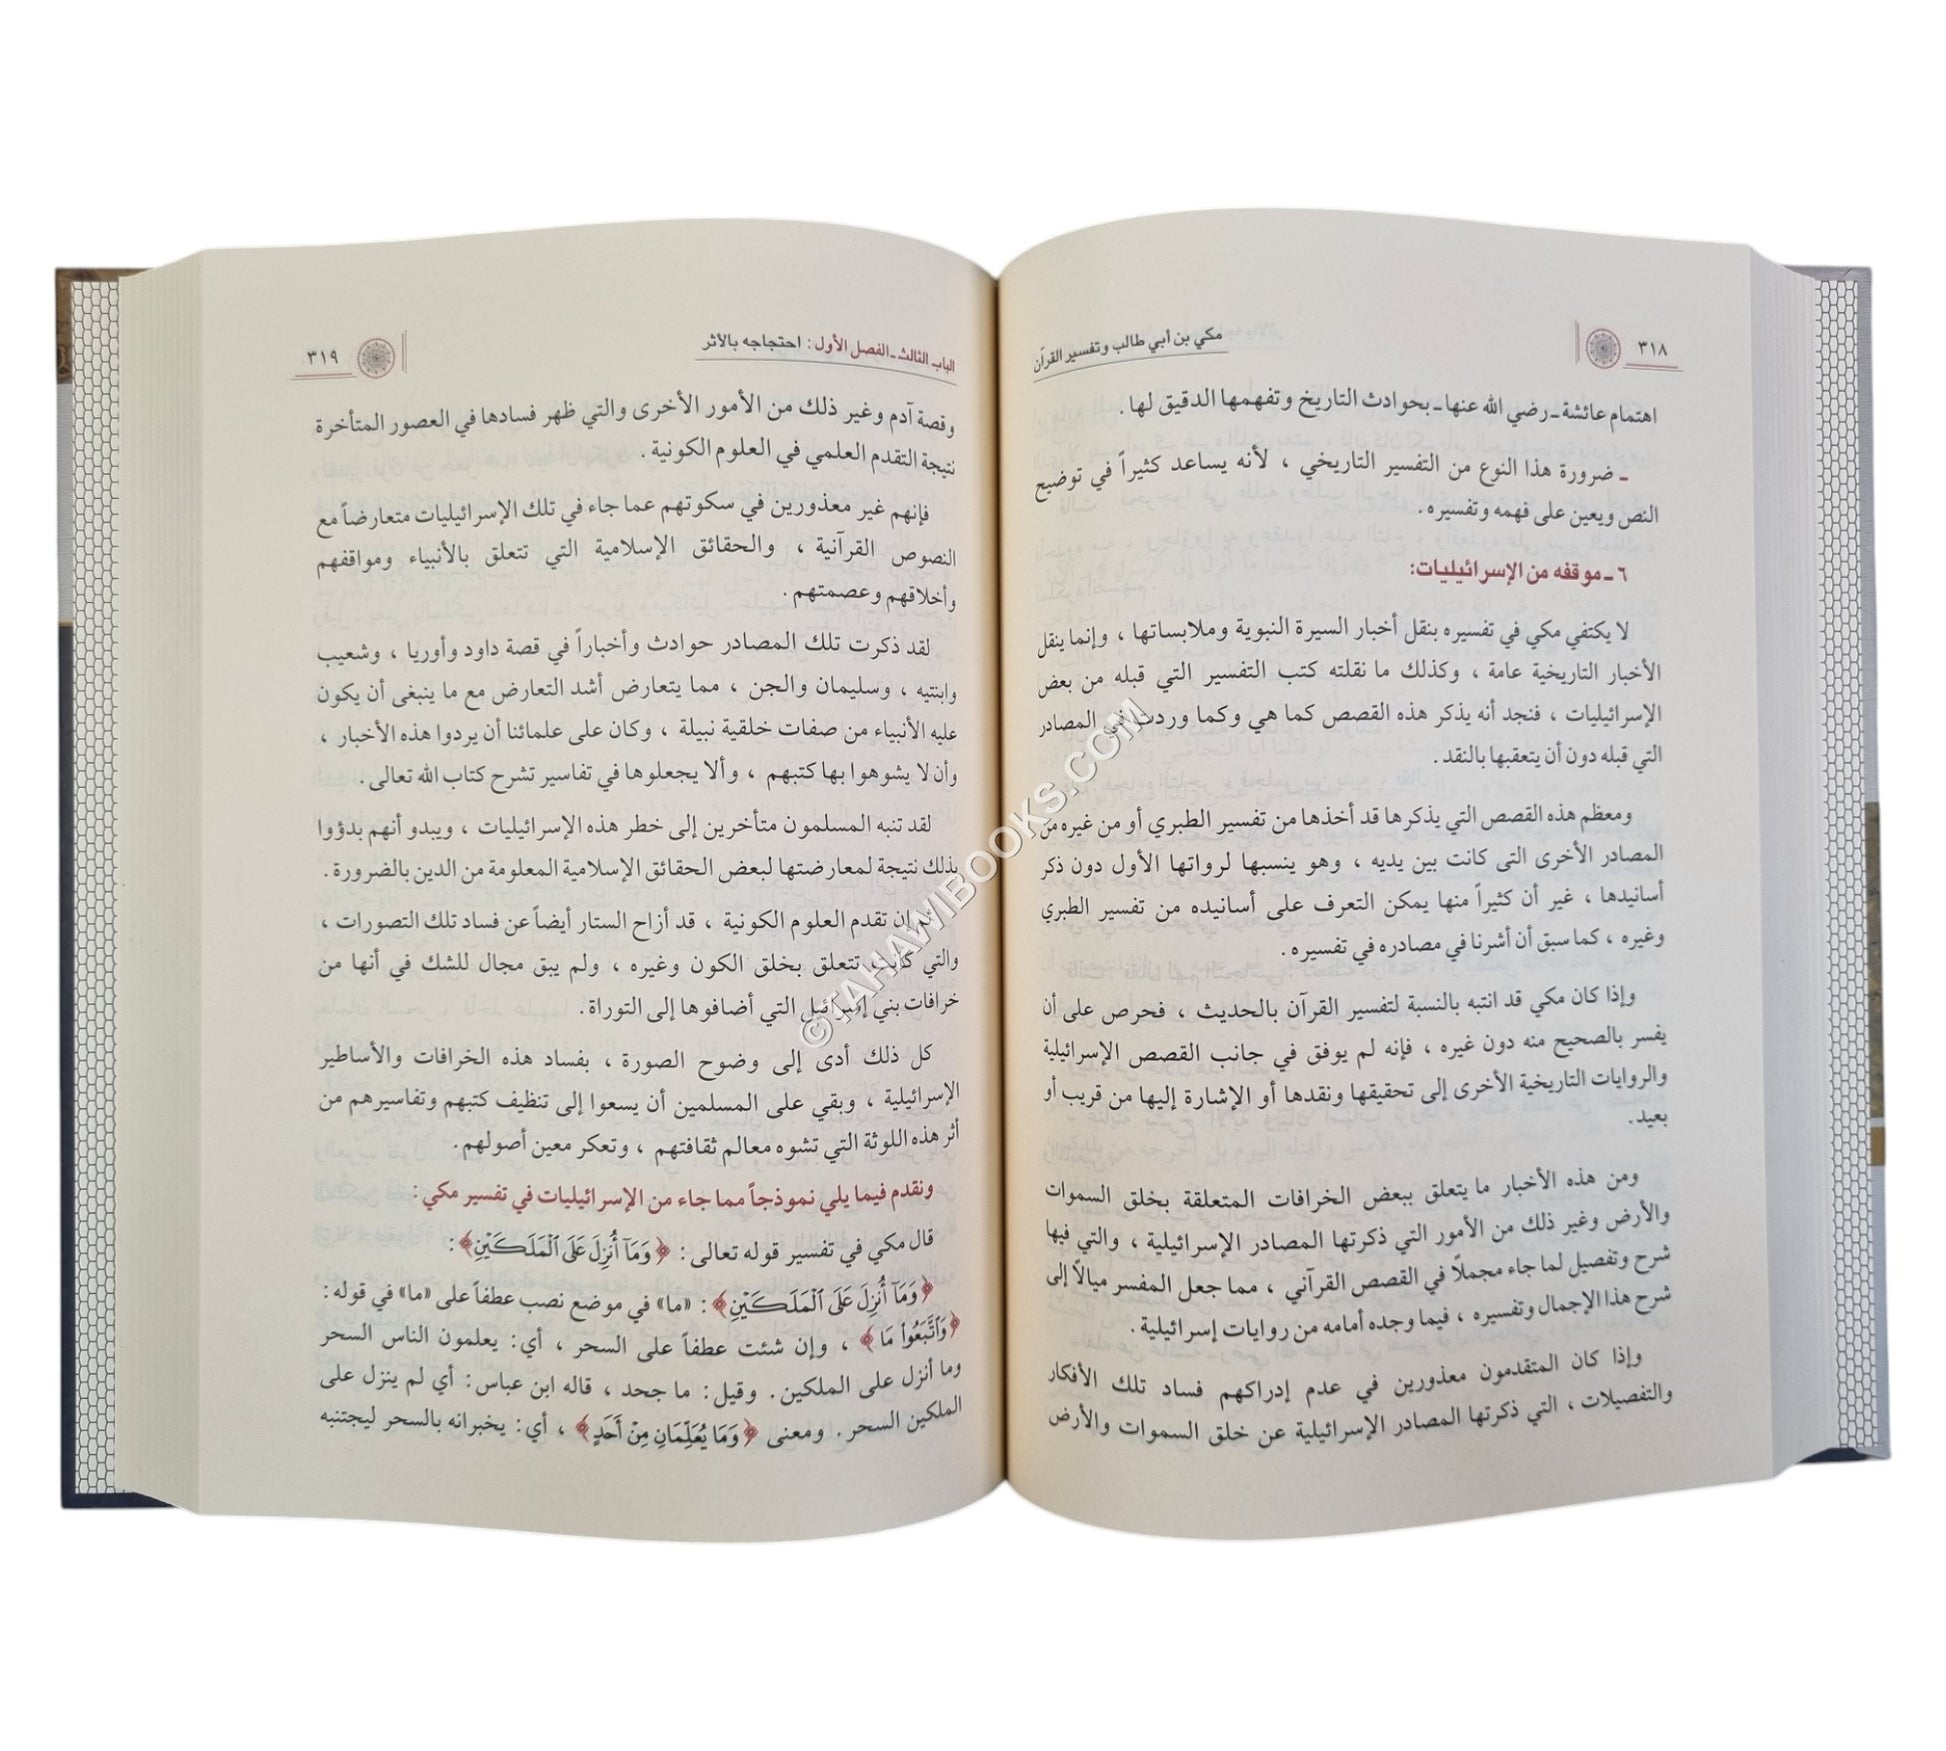 ٣١٨
مكي بن أبي طالب وتفسير القرآن
اهتمام عائشة ـ رضي الله عنها ـ بحوادث التاريخ وتفهمها الدقيق لها .
ـ ضرورة هذا النوع من التفسير التاريخي ، لأنه يساعد كثيراً في توضيح
النص ويعين على فهمه وتفسيره .
٦ ـ موقفه من الإسرائيليات:
لا يكتفي مكي في تفسيره بنقل أخبار السيرة النبوية وملابساتها ، وإنما ينقل
الأخبار التاريخية عامة ، وكذلك ما نقلته كتب التفسير التي قبله من بعض
الإسرائيليات ، فنجد أنه يذكر هذه القصص كما هي وكما وردت في المصادر
التي قبله دون أن يتعقبها بالنقد .
ومعظم هذه القصص التي يذكرها قد أخذها من تفسير الطبري أو من غيره من
المصادر الأخرى التى كانت بين يديه ، وهو ينسبها لرواتها الأول دون ذكر
أسانيدها ، غير أن كثيراً منها يمكن التعرف على أسانيده من تفسير الطبري
وغيره ، كما سبق أن أشرنا في مصادره في تفسيره .
وإذا كان مكي قد انتبه بالنسبة لتفسير القرآن بالحديث ، فحرص على أن
يفسر بالصحيح منه دون غيره ، فإنه لم يوفق في جانب القصص الإسرائيلية
والروايات التاريخية الأخرى إلى تحقيقها ونقدها أو الإشارة إليها من قريب أو
بعيد.
ومن هذه الأخبار ما يتعلق ببعض الخرافات المتعلقة بخلق السموات
والأرض وغير ذلك من الأمور التي ذكرتها المصادر الإسرائيلية ، والتي فيها
شرح وتفصيل لما جاء مجملاً في القصص القرآني ، مما جعل المفسر ميالاً إلى
شرح هذا الإجمال وتفسيره ، فيما وجده أمامه من روايات إسرائيلية .
وإذا كان المتقدمون معذورين في عدم إدراكهم فساد تلك الأفكار
والتفصيلات ، التي ذكرتها المصادر الإسرائيلية عن خلق السموات والأرض
الباب الثالث ـ الفصل الأول : احتجاجه بالأثر
٣١٩
وقصة آدم وغير ذلك من الأمور الأخرى والتي ظهر فسادها في العصور المتأخرة
نتيجة التقدم العلمي في العلوم الكونية .
فإنهم غير معذورين في سكوتهم عما جاء في تلك الإسرائيليات متعارضاً مع
النصوص القرآنية ، والحقائق الإسلامية التي تتعلق بالأنبياء ومواقفهم
وأخلاقهم وعصمتهم .
لقد ذكرت تلك المصادر حوادث وأخباراً في قصة داود وأوريا ، وشعيب
وابنتيه ، وسليمان والجن ، مما يتعارض أشد التعارض مع ما ينبغى أن يكون
عليه الأنبياء من صفات خلقية نبيلة ، وكان على علمائنا أن يردوا هذه الأخبار ،
وأن لا يشوهوا بها كتبهم ، وألا يجعلوها في تفاسير تشرح كتاب الله تعالى .
لقد تنبه المسلمون متأخرين إلى خطر هذه الإسرائيليات ، ويبدو أنهم بدؤوا
بذلك نتيجة لمعارضتها لبعض الحقائق الإسلامية المعلومة من الدين بالضرورة .
ثم إن تقدم العلوم الكونية ، قد أزاح الستار أيضاً عن فساد تلك التصورات ،
والتي كانت تتعلق بخلق الكون وغيره ، ولم يبق مجال للشك في أنها من
خرافات بني إسرائيل التي أضافوها إلى التوراة .
كل ذلك أدى إلى وضوح الصورة ، بفساد هذه الخرافات والأساطير
الإسرائيلية ، وبقي على المسلمين أن يسعوا إلى تنظيف كتبهم وتفاسيرهم من
أثر هذه اللوثة التي تشوه معالم ثقافتهم ، وتعكر معين أصولهم.
ونقدم فيما يلي نموذجاً مما جاء من الإسرائيليات في تفسير مكي :
قال مكي في تفسير قوله تعالى : ﴿وَمَآ أُنزِلَ عَلَى ٱلْمَلَكَيْنِ﴾ :
﴿وَمَآ أُنزِلَ عَلَى ٱلْمَلَكَيْنِ﴾ : «ما» في موضع نصب عطفاً على «ما» في قوله :
﴿وَٱتَّبَعُوا۟ مَا﴾ ، وإن شئت عطفاً على السحر ، أي : يعلمون الناس السحر
وما أنزل على الملكين . وقيل : ما جحد ، قاله ابن عباس : أي لم ينزل على
الملكين السحر . ومعنى ﴿وَمَا يُعَلِّمَانِ مِنْ أَحَدٍ﴾ ، أي : يخبرانه بالسحر ليجتنبه
©TAHAWIBOOKS.COM